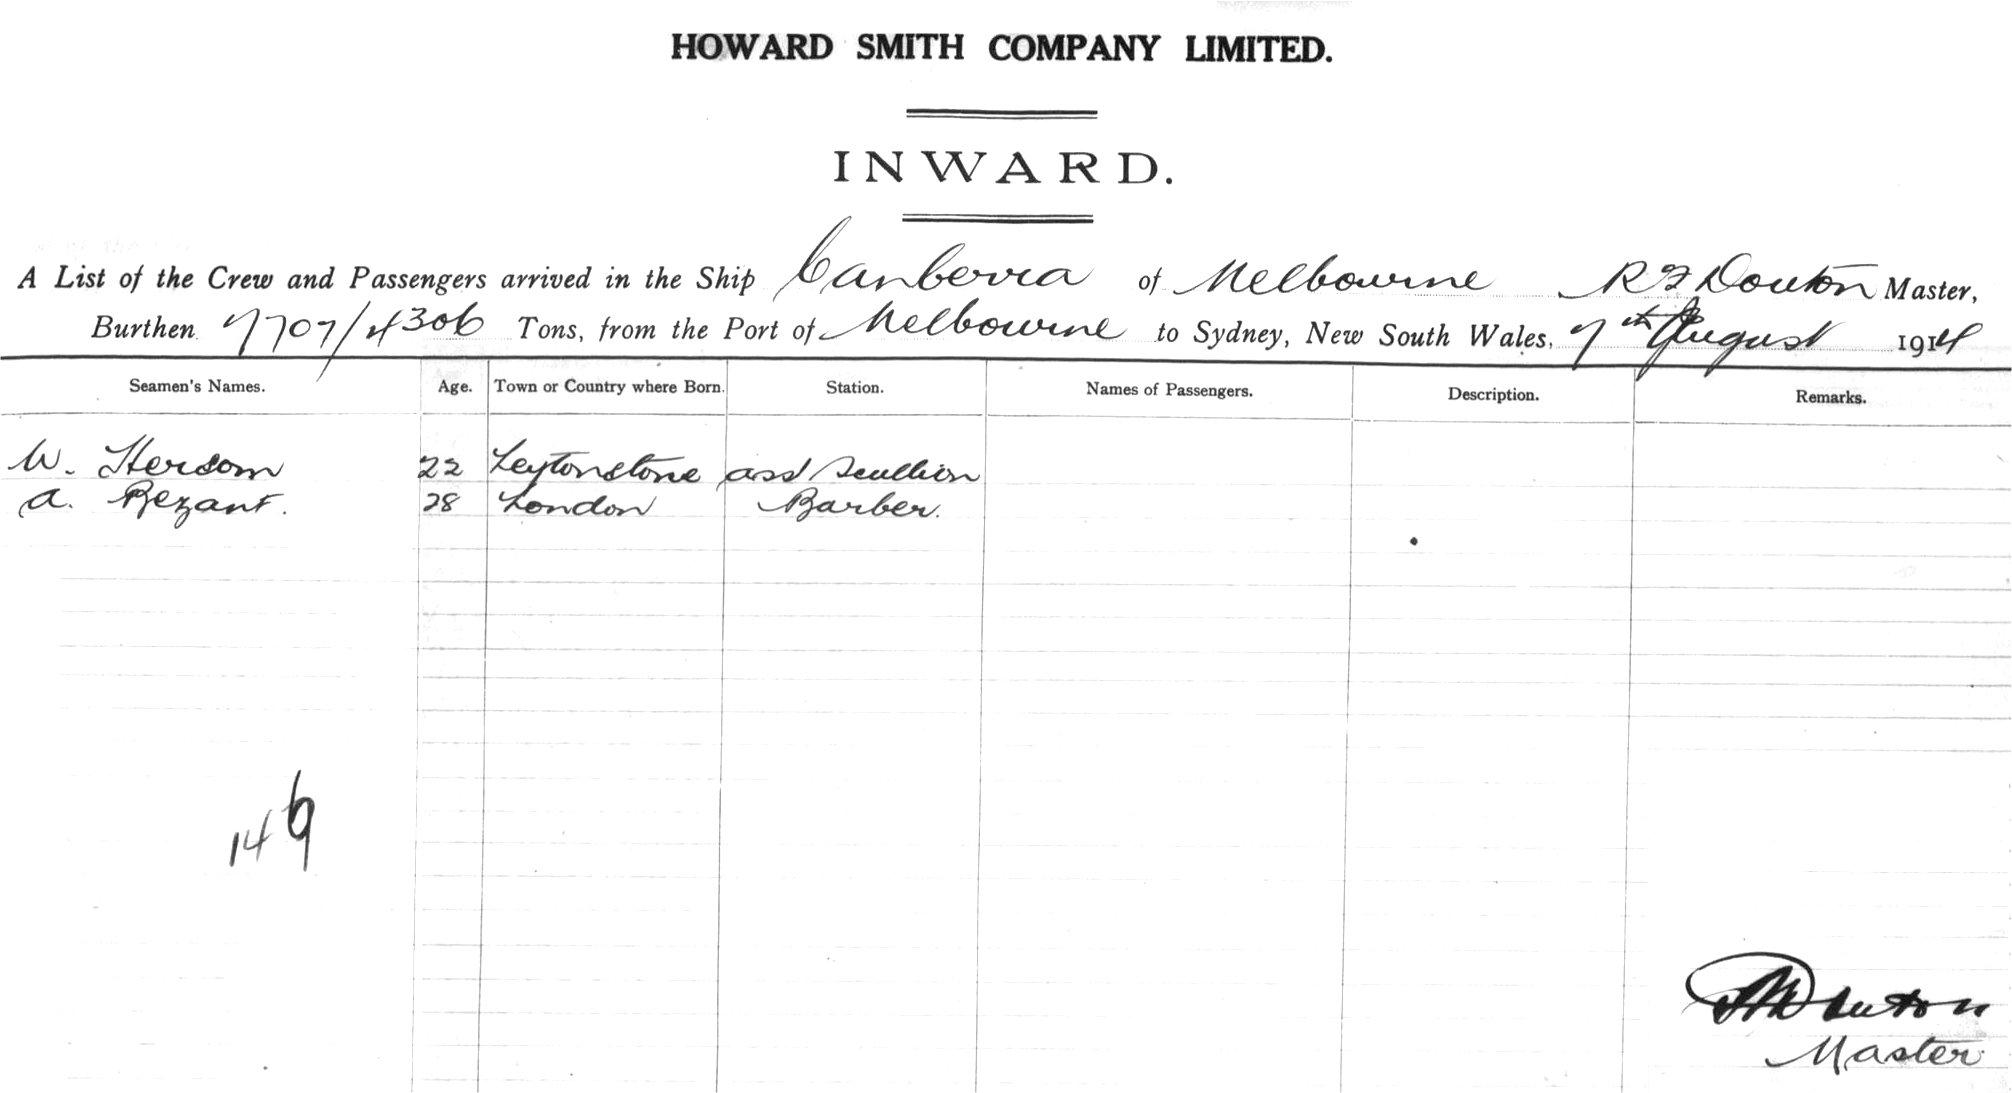 HOWARD SMITH COMPANY LIMITED.
INWARD.
A List of the Crew and Passengers arrived in the Ship Canberra of Melbourne R F Douton Master,
Burthen 7707/4306 Tons, from the Port of Melbourne to Sydney, New South Wales, 7th August 1914
Seamen's Names. Age. Town or Country where Born. Station. Names of Passengers. Description. Remarks.
W. Hersom 22 Leytonstone asst Scullion
A. Bezant. 28 London Barber.
149
Master